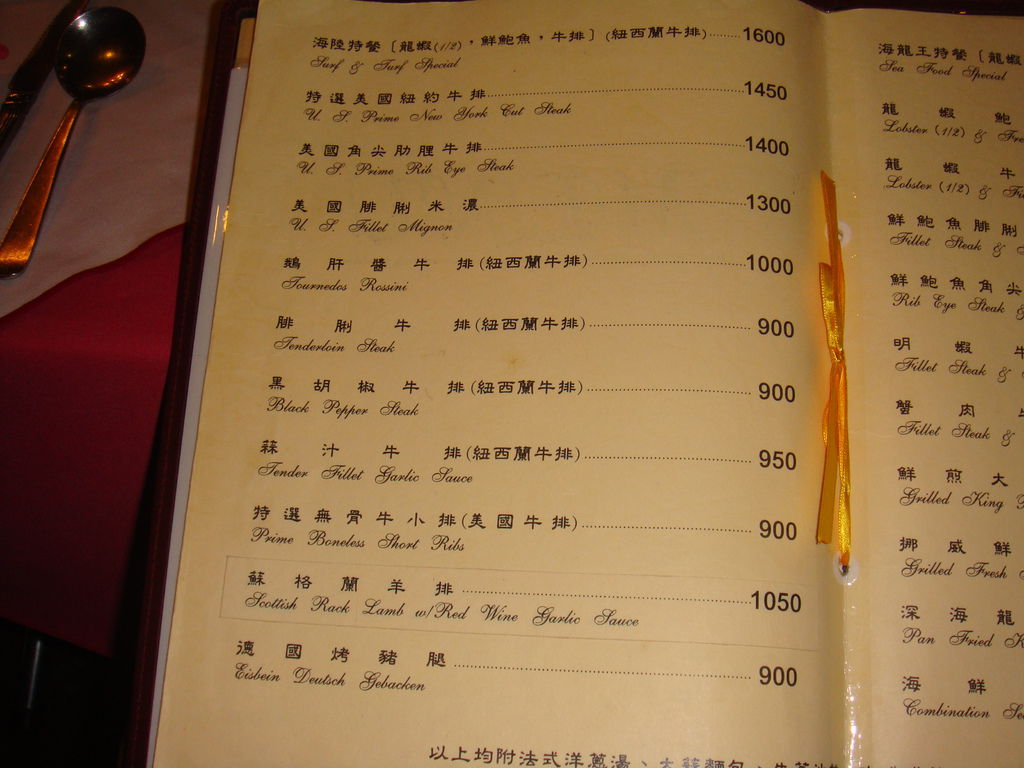 海陸特餐〔龍蝦(1/2),鮮鮑魚,牛排〕(紐西蘭牛排)........1600
Surf & Turf Special
特選美國紐約牛排........1450
U. S. Prime New York Cut Steak
美國角尖肋脷牛排........1400
U. S. Prime Rib Eye Steak
美國腓脷米濃........1300
U. S. Fillet Mignon
鵝肝醬牛排(紐西蘭牛排)........1000
Tournedos Rossini
腓脷牛排(紐西蘭牛排)........900
Tenderloin Steak
黑胡椒牛排(紐西蘭牛排)........900
Black Pepper Steak
蒜汁牛排(紐西蘭牛排)........950
Tender Fillet Garlic Sauce
特選無骨牛小排(美國牛排)........900
Prime Boneless Short Ribs
蘇格蘭羊排........1050
Scottish Rack Lamb w/Red Wine Garlic Sauce
德國烤豬腿........900
Eisbein Deutsch Gebacken
以上均附法式洋蔥湯、
海龍王特餐〔龍蝦
Sea Food Special
龍蝦鮑
Lobster (1/2) &
龍蝦牛
Lobster (1/2) &
鮮鮑魚腓脷
Fillet Steak &
鮮鮑魚角尖
Rib Eye Steak &
明蝦牛
Fillet Steak &
蟹肉
Fillet Steak &
鮮煎大
Grilled King
挪威鮮
Grilled Fresh
深海龍
Pan Fried
海鮮
Combination